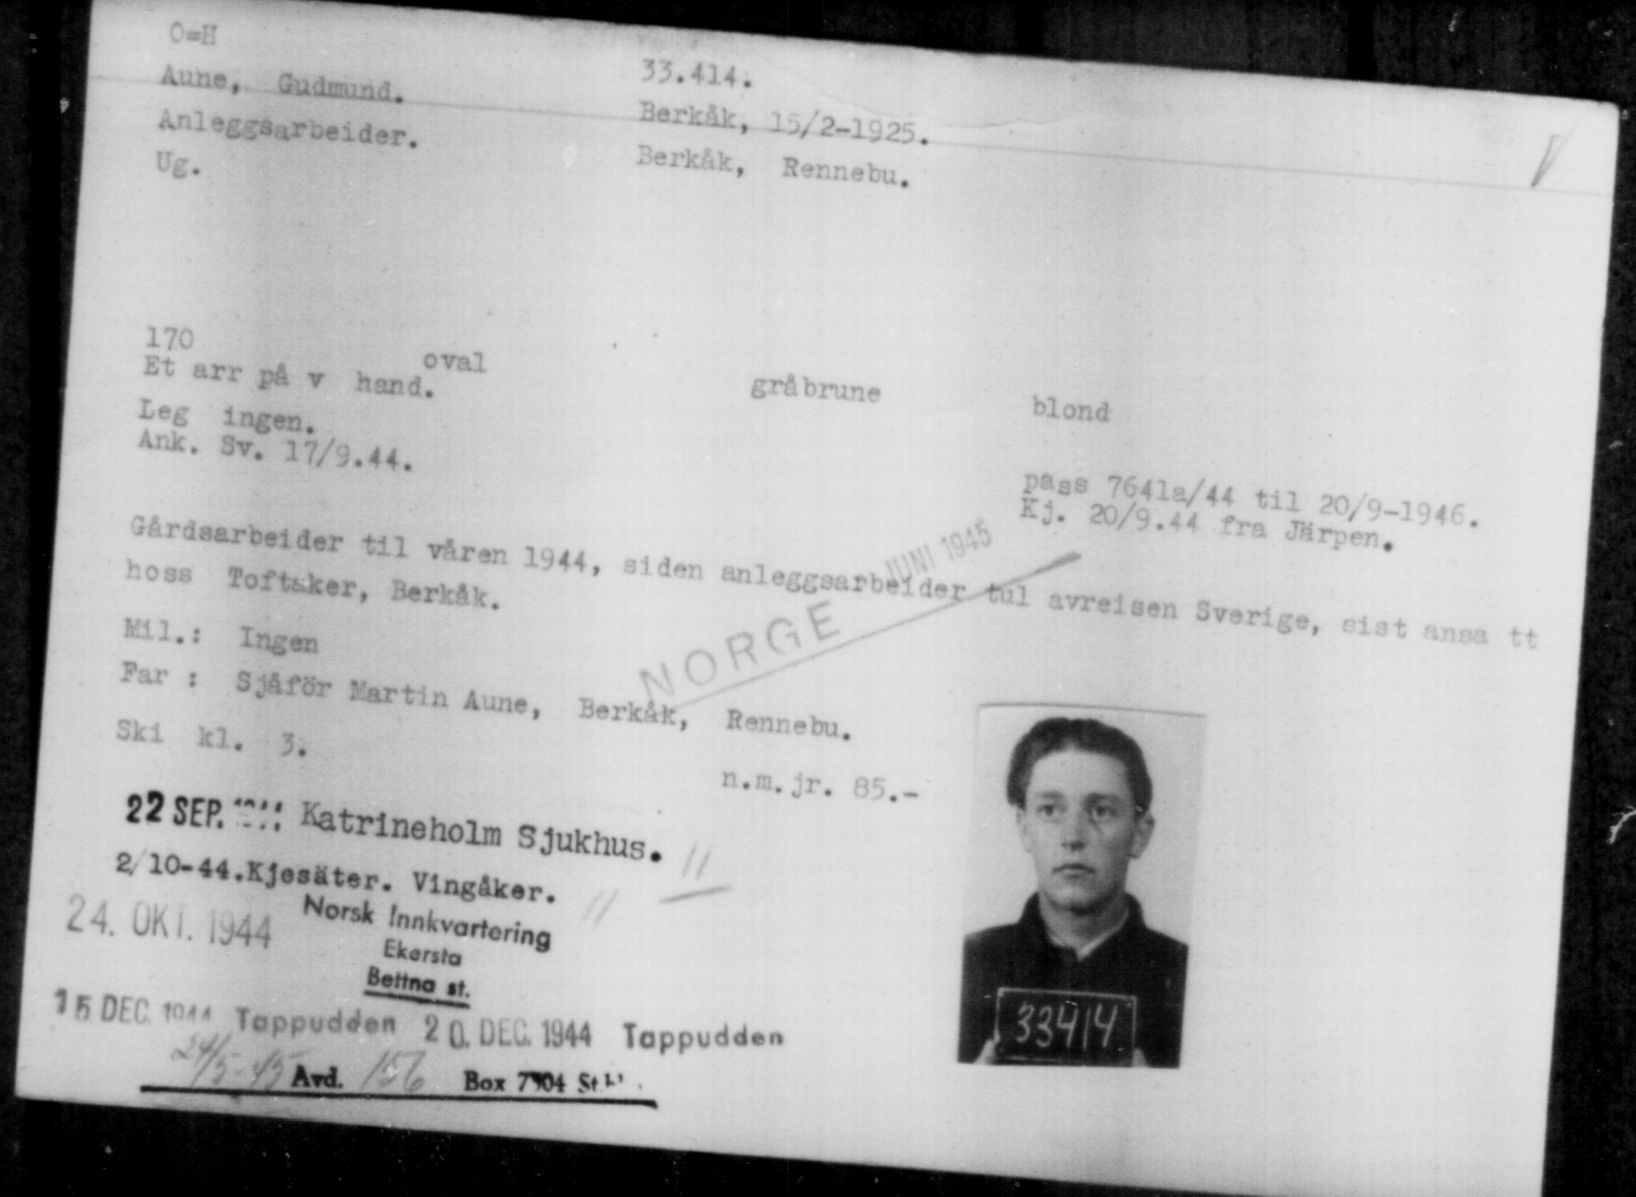 O=H
33.414.
Aune, Gudmund.
Berkåk, 15/2-1925.
Anleggsarbeider.
Berkåk, Rennebu.
Ug.
170
oval
gråbrune
blond
Et arr på v hand.
Leg ingen.
Ank. Sv. 17/9.44.
pass 7641a/44 til 20/9-1946.
Kj. 20/9.44 fra Järpen.
Gårdsarbeider til våren 1944, siden anleggsarbeider tul avreisen Sverige, sist ansa tt
hoss Toftaker, Berkåk.
JUNI 1945
NORGE
Mil.: Ingen
Far : Sjåför Martin Aune, Berkåk, Rennebu.
Ski kl. 3.
n.m.jr. 85.-
22 SEP. Katrineholm Sjukhus.
2/10-44.Kjesäter. Vingåker.
24. OKT. 1944 Norsk Innkvartering
Ekersta
Bettna st.
15 DEC. 1944 Tappudden 20. DEC. 1944 Tappudden
24/5-45 Avd. 156 Box 7904
33414